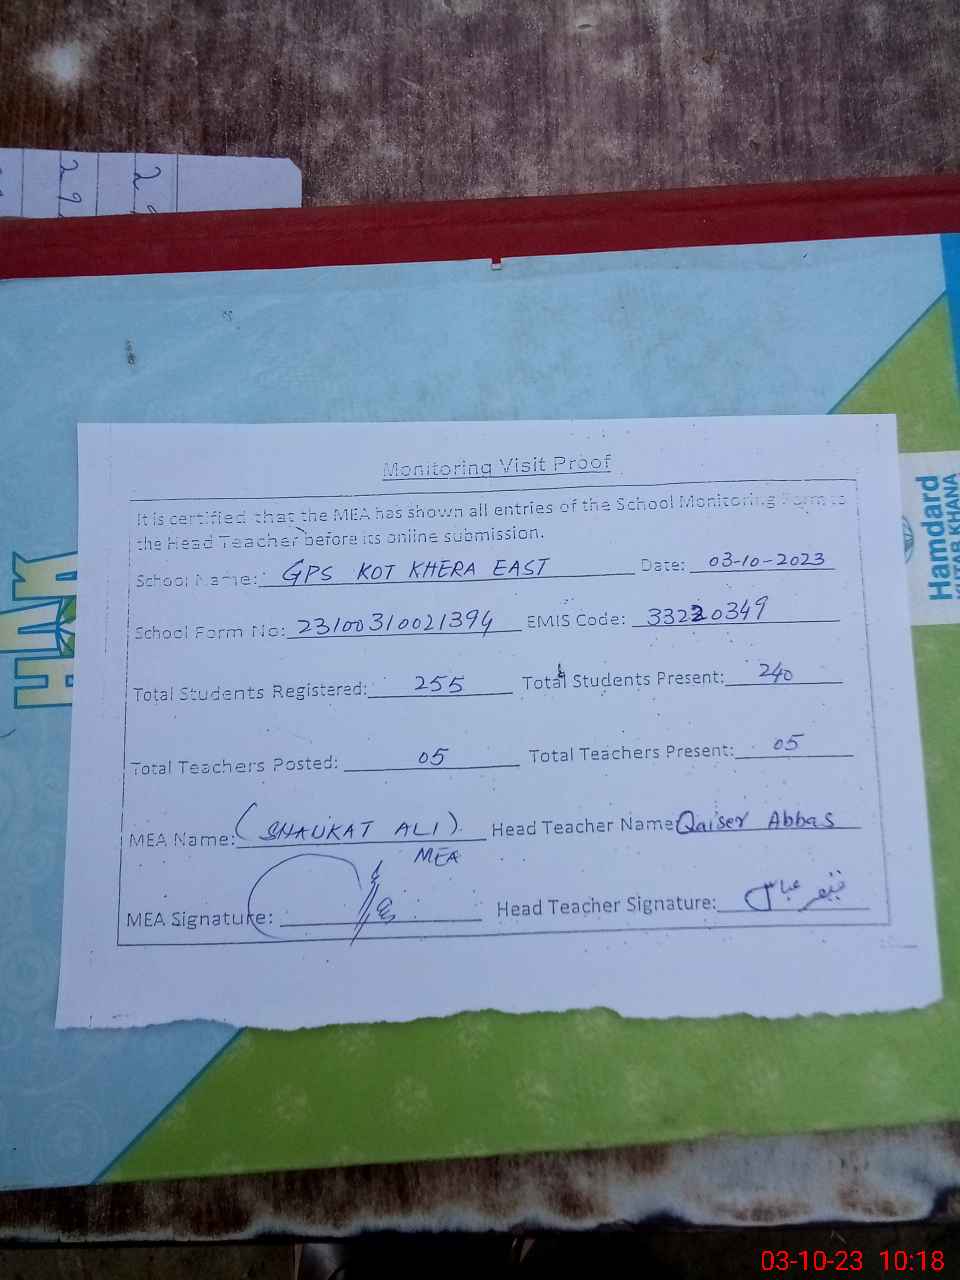 2 9
2 9
Monitoring Visit Proof
It is certified that the MEA has shown all entries of the School Monitoring Form to
the Head Teacher before its online submission.
School Name: GPS KOT KHERA EAST Date: 03-10-2023
School Form No: 23100310021394 EMIS Code: 33220349
Total Students Registered: 255 Total Students Present: 240
Total Teachers Posted: 05 Total Teachers Present: 05
MEA Name: (SHAUKAT ALI) Head Teacher Name Qaiser Abbas
MEA
MEA Signature: Head Teacher Signature: قیصر عباس
Hamdard
KUTAB KHANA
03-10-23 10:18